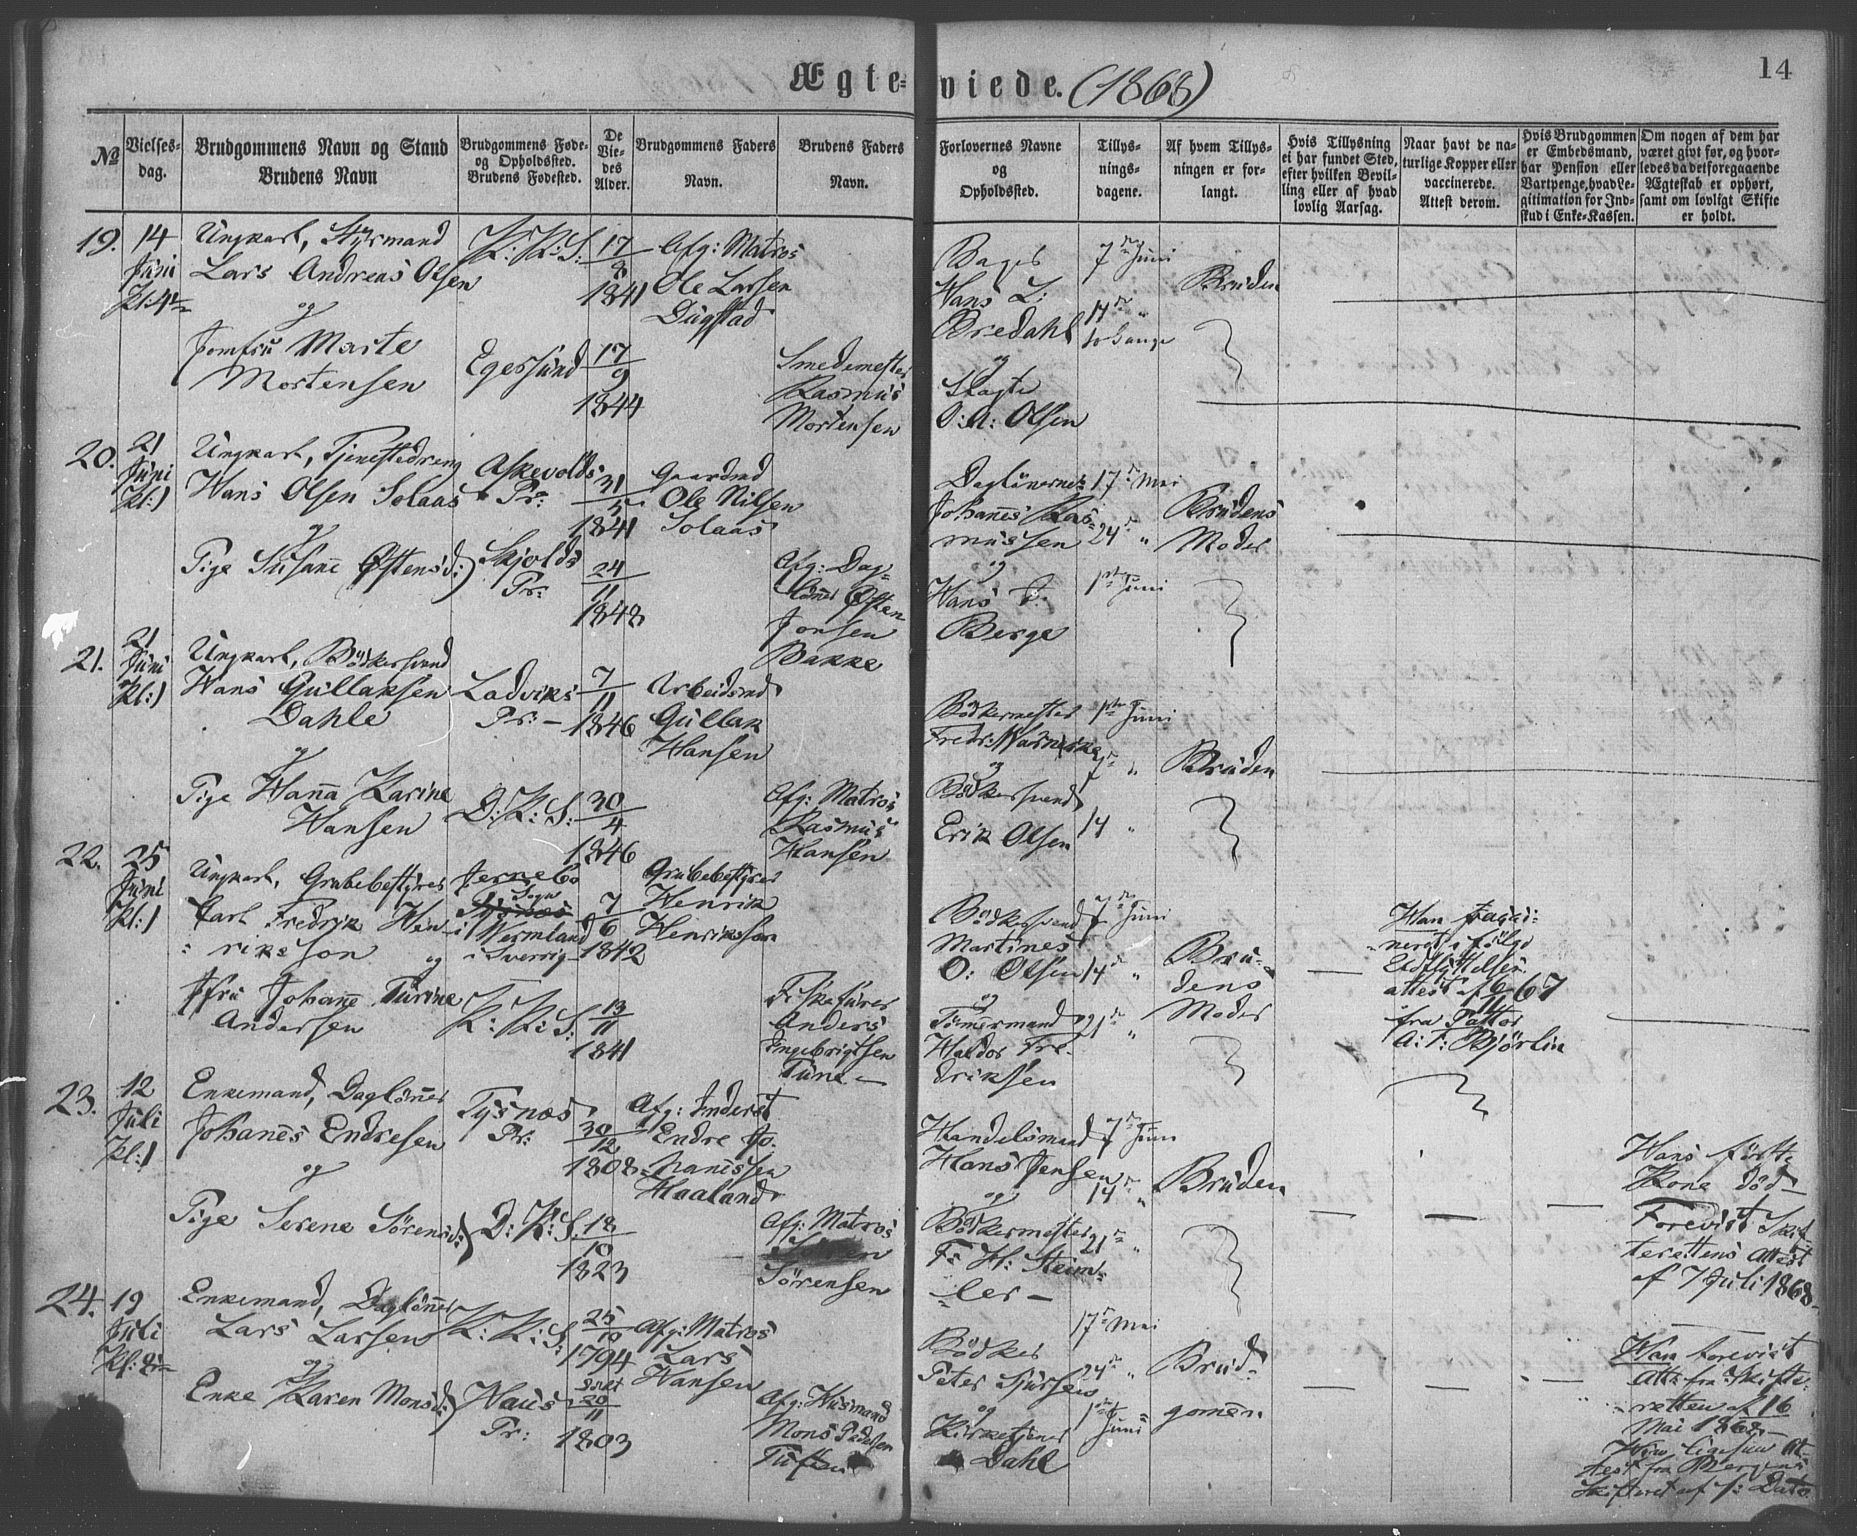 Ægte-viede. (1868)
14
No
Vielses-
dag.
Brudgommens Navn og Stand
Brudens Navn
Brudgommens Føde-
og Opholdssted.
Brudens Fødested.
De
Vie-
des
Alder.
Brudgommens Faders
Navn.
Brudens Faders
Navn.
Forlovernes Navne
og
Opholdssted.
Tillys-
nings-
dagene.
Af hvem Tillys-
ningen er for-
langt.
Hvis Tillysning
ei har fundet Sted,
efter hvilken Bevil-
ling eller af hvad
lovlig Aarsag.
Naar havt de na-
turlige Kopper eller
vaccinerede.
Attest derom.
Hvis Brudgommen
er Embedsmand,
har Pension eller
Vartpenge, hvad Le-
gitimation for Ind-
skud i Enke-Kassen.
Om nogen af dem har
været gift før, og hvor-
ledes da det foregaaende
Ægteskab er ophørt,
samt om lovligt Skifte
er holdt.
19.
14
Juni
Kl. 4
Ungkarl, Styrmand
Lars Andreas Olsen
og
Jomfru Marte
Mortensen
K: K: S:
Egersund
17/8
1841
17/9
1844
Afg: Matros
Ole Larsen
Dugstad
Smedemester
Rasmus
Mortensen
Bager
Hans L:
Bredahl
og
O: A: Olsen
7de Juni
14de "
to Gange
Bruden
20.
21
Juni
Kl: 1
Ungkarl, Tjenestedreng
Hans Olsen Solaas
og
Pige Susane Østensd:
Askevolds
Pr:
Skjolds
Pr:
31/5
1841
24/11
1848
Gaardmd
Ole Nilsen
Solaas
Afg: Dag-
lønner Østen
Jonsen
Bakke
Daglønner
Johannes Ras-
mussen
og
Hans
Berge
17de Mai
24de "
1ste Juni
Brudens
Moder
21.
21
Juni
Kl: 1
Ungkarl, Bødkersvend
Hans Gullaksen
Dahle
og
Pige Hanna Karine
Hansen
Ladviks
Pr: –
D: K: S:
7/11
1846
30/4
1846
Arbeidsmd
Gullak
Hansen
Afg: Matros
Rasmus
Hansen
Bødkermester
Fredr: Warnecke
og
Bødkersvend
Erik Olsen
1ste Juni
7de "
14 "
Bruden
22.
25
Juni
Kl: 1
Ungkarl, Grubebestyrer
Carl Fredrik Hen-
rikson
og
Jfru Johanne Turine
Andersen
Jernebo
Sogn
i Wermland
i Sverrig
K: K: S:
7/6
1842
13/11
1841
Grubebestyrer
Henrik
Henriksson
Fiskefører
Anders
Ingebrigtsen
Tune –
Bødkersvend
Martines
O: Olsen
og
Tømmermand
Haldor Fre-
driksen
7de Juni
14de "
21de "
Bru-
dens
Moder
Han
i følge
Udflyttelses-
attest af
67
fra Pastor
A: F: Björlin
23.
12
Juli
Kl: 1
Enkemand, Daglønner
Johannes Endresen
og
Pige Serene Sørensd:
Tysnæs
Pr:
D: K: S:
30/12
1808
18/10
1823
Afg: Inderst
Endre Jo-
hannessen
Haaland
Afg: Matros
Søren
Sørensen
Handelsmand
Hans Jensen
og
Bødkermester
F: H: Steim-
ler –
7de Juni
14de "
21de "
Bruden
Hans første
Kone død –
Forevist Skif-
terettens Attest
af 7 Juli 1868 –
24.
19
Juli
Enkemand, Daglønner
Lars Larsen
og
Enke Karen Monsd:
K: K: S:
Haus
Pr:
25/10
1794
døbt
20/11
1803
Afg: Matros
Lars
Hansen
Afg: Husmand
Mons Pedersen
Tuften
Bødker
Peter Sjursen
og
Kirketjener
Dahl
17de Mai
24de "
1ste Juni
Brud-
gommen
Han forevist
Att: fra Skifte-
retten af 16
Mai 1868 –
Hun ligesaa At-
test fra Bergens
Skifteret af s: Dato